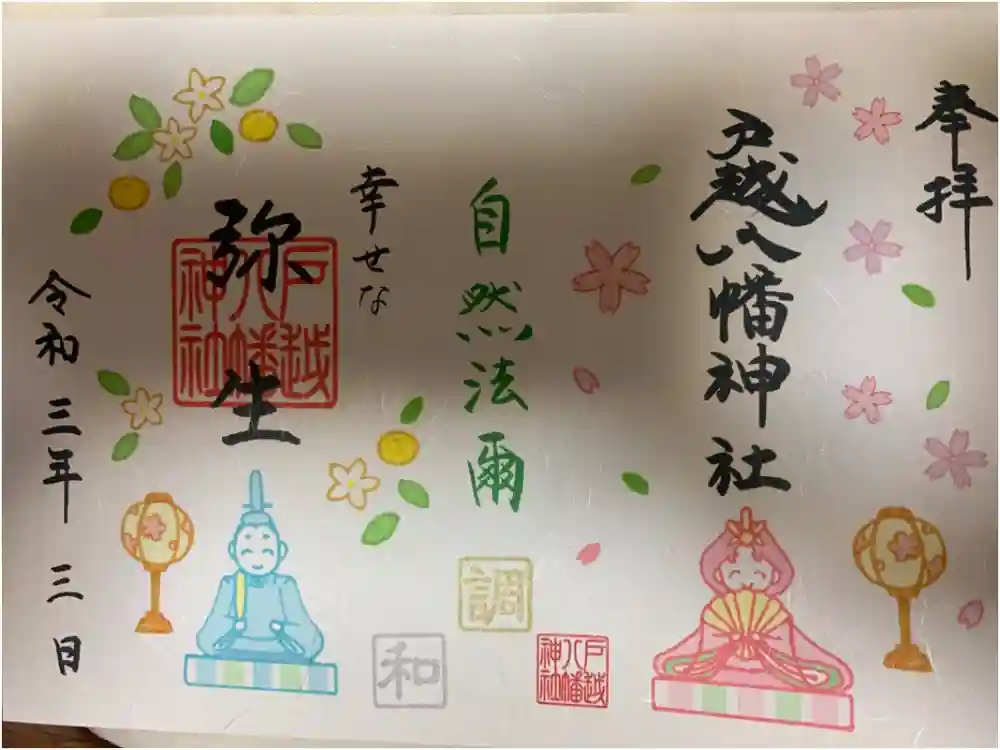 奉拝
戸越八幡神社
自然法爾
幸せな
弥生
戸越
八幡
神社
令和三年三日
調
和
戸越
八幡
神社